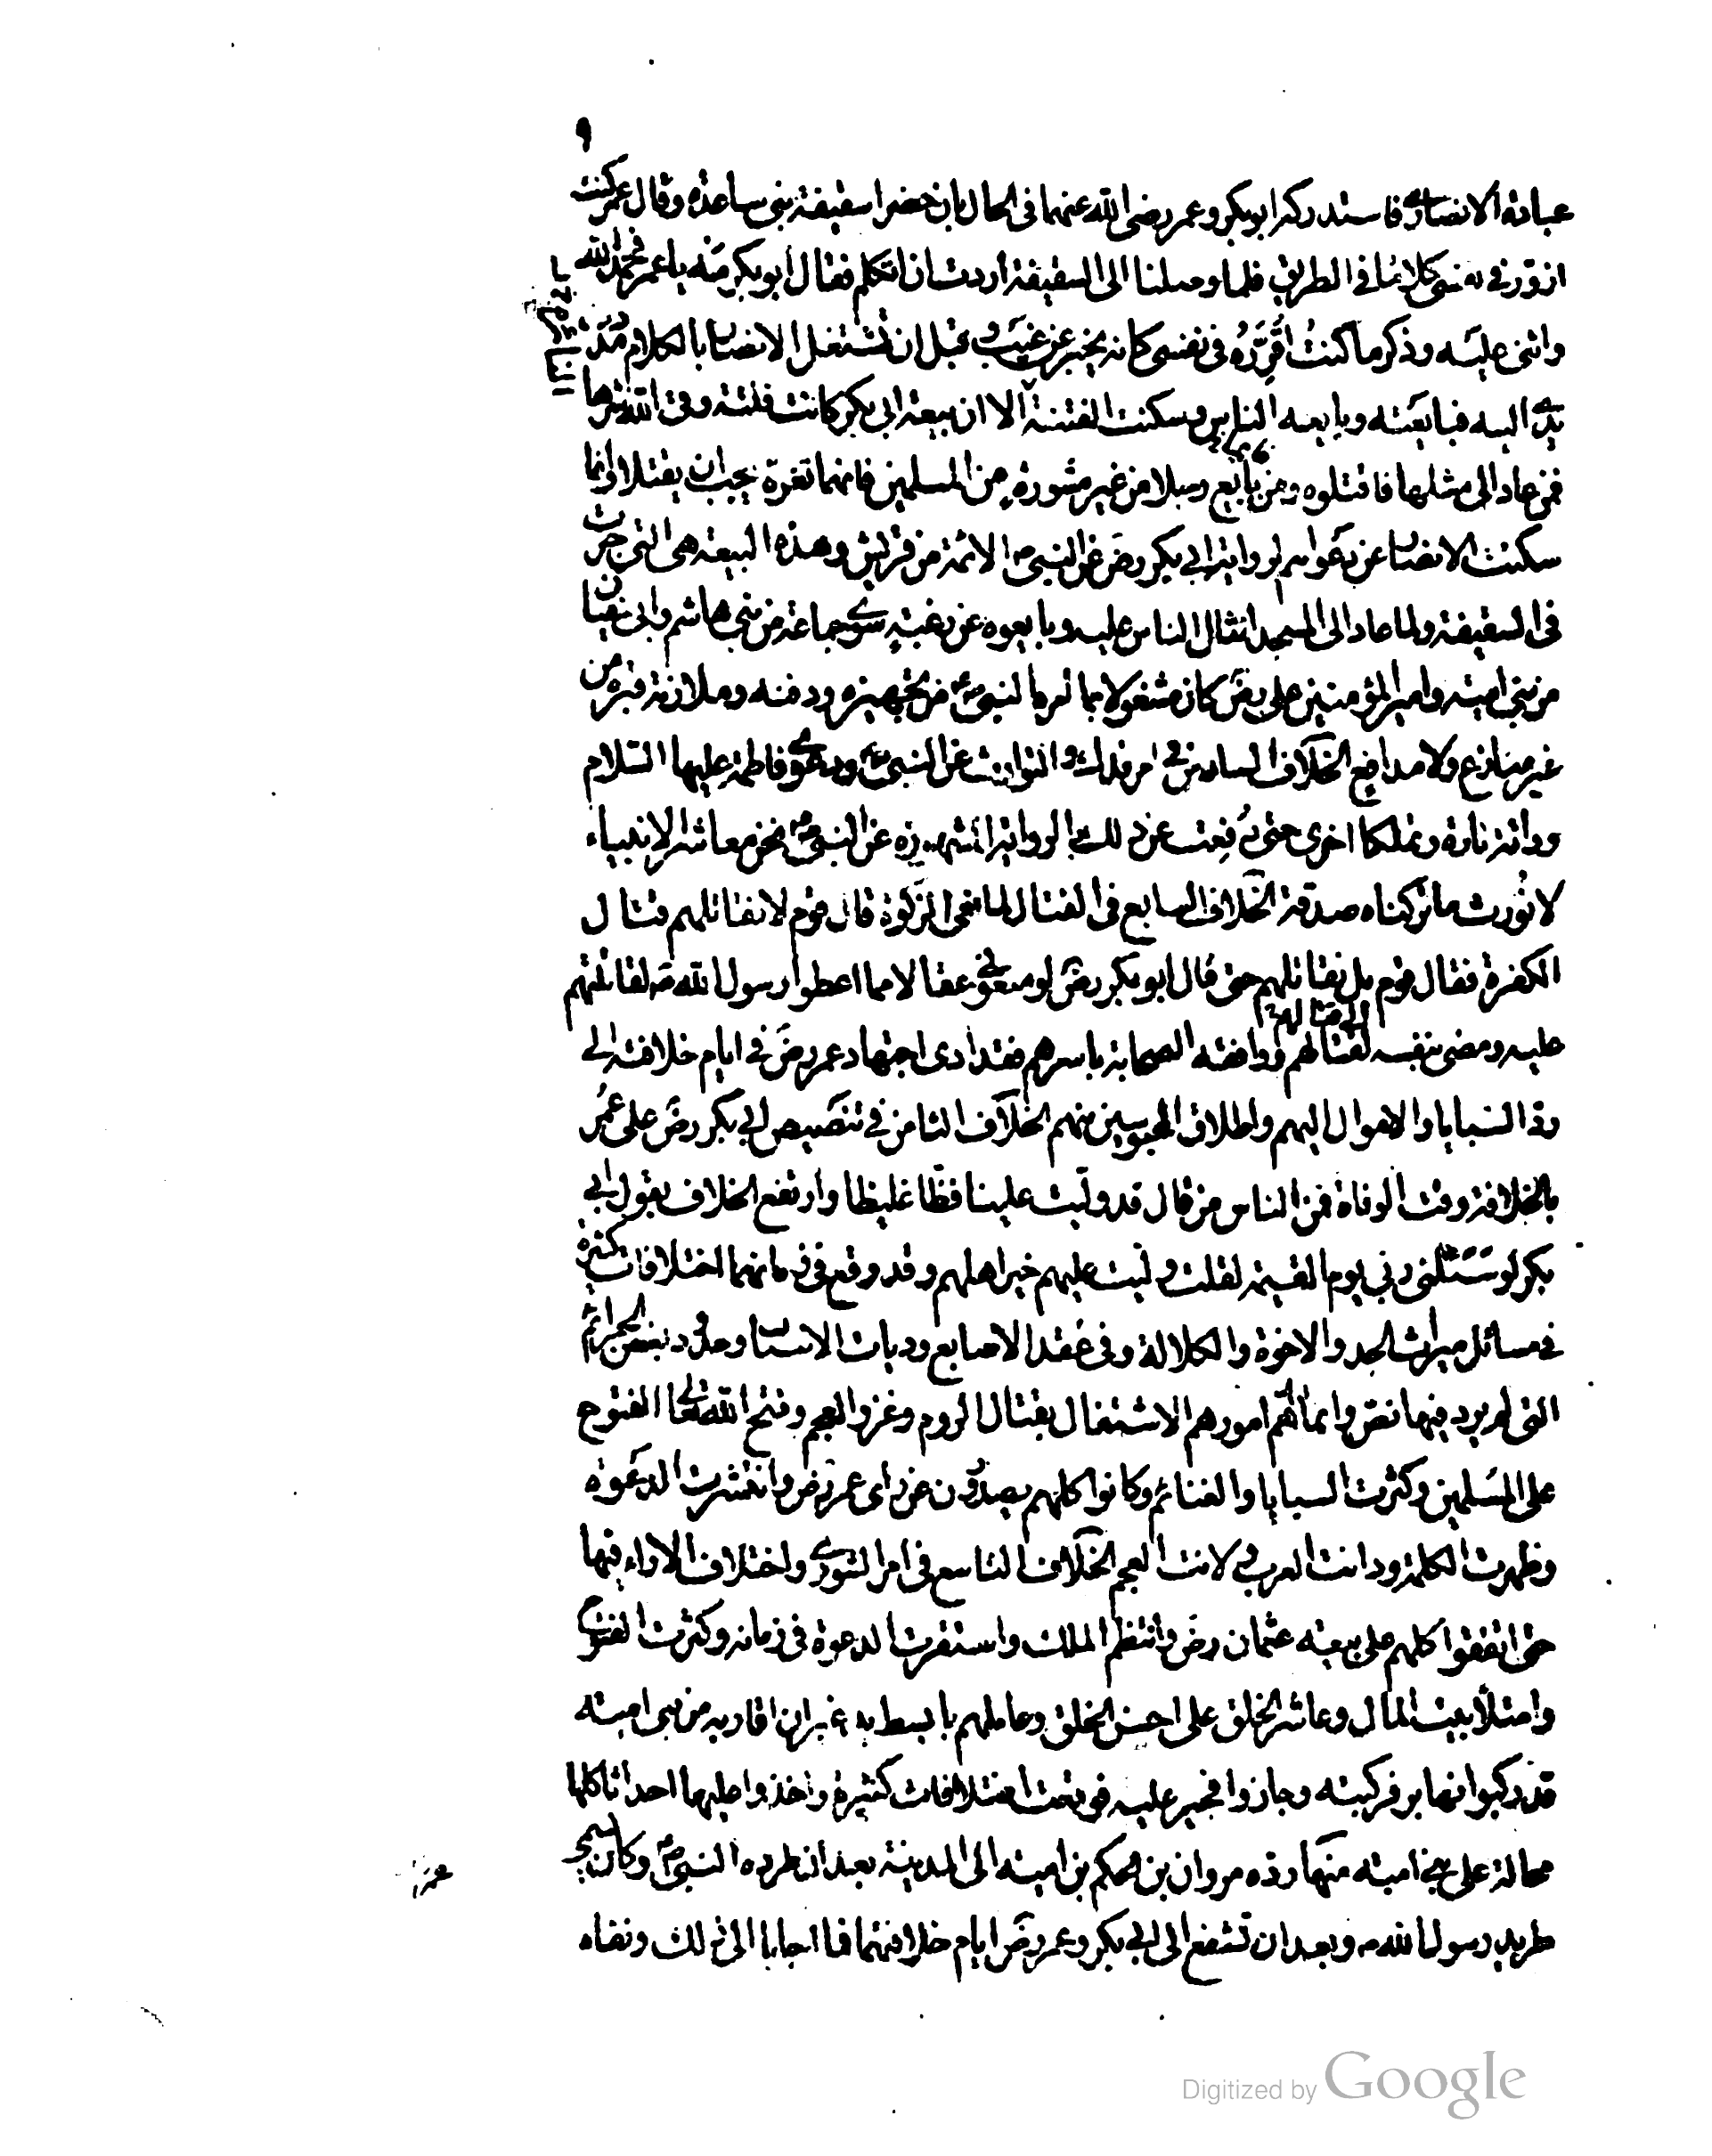 ٩
عبادة الانصارى فاستدركه ابوبكر وعمر رضى الله عنهما فى الحال بان حضرا سقيفة بنى ساعدة وقال عمر كنت
ازور فى نفسى كلاما فى الطريق فلما وصلنا الى السقيفة اردت ان اتكلم فقال ابوبكر مَه يا عمر فحمد الله
واثنى عليه وذكر ما كنتُ اُقرِّرُه فى نفسى كانه يخبر عن غيب وقبل ان تشتغل الانصار بالكلام مددت
يدى اليه فبايعته وبايعه الناس وسكنت الفتنة الا ان بيعة ابى بكر كانت فلتة وقى الله شرها
فمن عاد الى مثلها فاقتلوه ومن بايع رجلا من غير مشورة من المسلمين فانهما تغرة يجب ان يقتلا وانما
سكنت الانصار عن دعواهم لرواية ابى بكر رض عن النبى ص الائمة من قريش وهذه البيعة هى التى جرت
فى السقيفة ولما عاد الى المسجد انثال الناس عليه وبايعوه عن رغبةٍ سوى جماعة من بنى هاشم وابى سفيان
من بنى امية وامير المؤمنين على رض كان مشغولا بما امره النبى ص من تجهيزه ودفنه وملازمة قبره من
غير منازع ولا مدافع الخلاف السادس فى امر فدك والتوارث عن النبى ص ودعوى فاطمة عليها السلام
وراثة تارة وتملكا اخرى حتى دُفِعت عن ذلك بالرواية المشهورة عن النبى ص نحن معاشر الانبياء
لا نُورث ما تركناه صدقة الخلاف السابع فى القتال لمانعى الزكوة قال قوم لا نقاتلهم قتال
الكفرة فقال قوم بل نقاتلهم حتى قال ابوبكر رض لو منعونى عقالا مما اعطوا رسول الله ص لقاتلتهم
الى قتالهم
عليه ومضى بنفسه لقتالهم ووافقه الصحابة باسرهم فقد ادى اجتهاد عمر رض فى ايام خلافته الى
رد السبايا والاموال اليهم واطلاق المحبوسين منهم الخلاف الثامن فى تنصيص ابى بكر رض على عُمر
بالخلافة وقت الوفاة فمن الناس من قال قد وليت علينا فظا غليظا وارتفع الخلاف بقول ابى
بكر لو سئلنى ربى يوم القيمة لقلت وليت عليهم خير اهلهم وقد وقع فى زمانهما اختلافات كثيرة
فى مسائل ميراث الجد والاخوة والكلالة وفى عقد الاصابع وديات الاسنان وحدود بعض الجرائم
التى لم يرد فيها نص وانما اهم امورهم الاشتغال بقتال الروم وغزو العجم وفتح الله تعالى الفتوح
على المسلمين وكثرت السبايا والغنائم وكانوا كلهم يصدرون عن راى عمر رض وانتشرت الدعوة
وظهرت الكلمة ودانت العرب ولانت العجم الخلاف التاسع فى امر الشورى واختلاف الاراء فيها
حتى اتفقوا كلهم على بيعته عثمان رض وانتظم الملك واستقرت الدعوة فى زمانه وكثرت الفتوح
وامتلأ بيت المال وعاشر الخلق على احسن الخلق وعاملهم بابسط يد غير ان اقاربه من بنى امية
قد ركبوا نهابر فركبته وجاروا فجير عليه فوقعت اختلافات كثيرة واخذوا عليها احداثا كلها
محالة على بنى امية منها رده مروان بن الحكم بن امية الى المدينة بعد ان طرده النبى ص وكان يسمى
طريد رسول الله ص وبعد ان تشفع الى ابى بكر وعمر رض ايام خلافتهما فما اجابا الى ذلك ونفاه
Digitized by Google